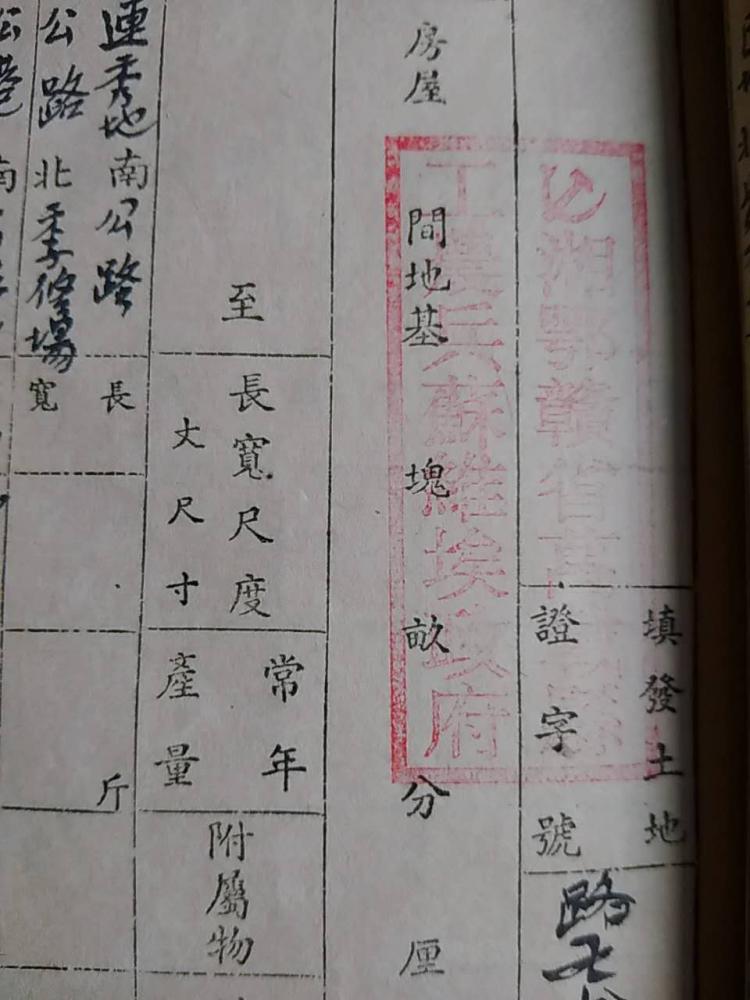 填發土地
證字號
路
湘鄂贛省
工農兵蘇維埃政府
房屋 間地基 塊 畝 分 厘
至
長寬尺度
丈尺寸
常年
產量
附屬物
連秀地南公路
公路北季修場
長
寬
斤